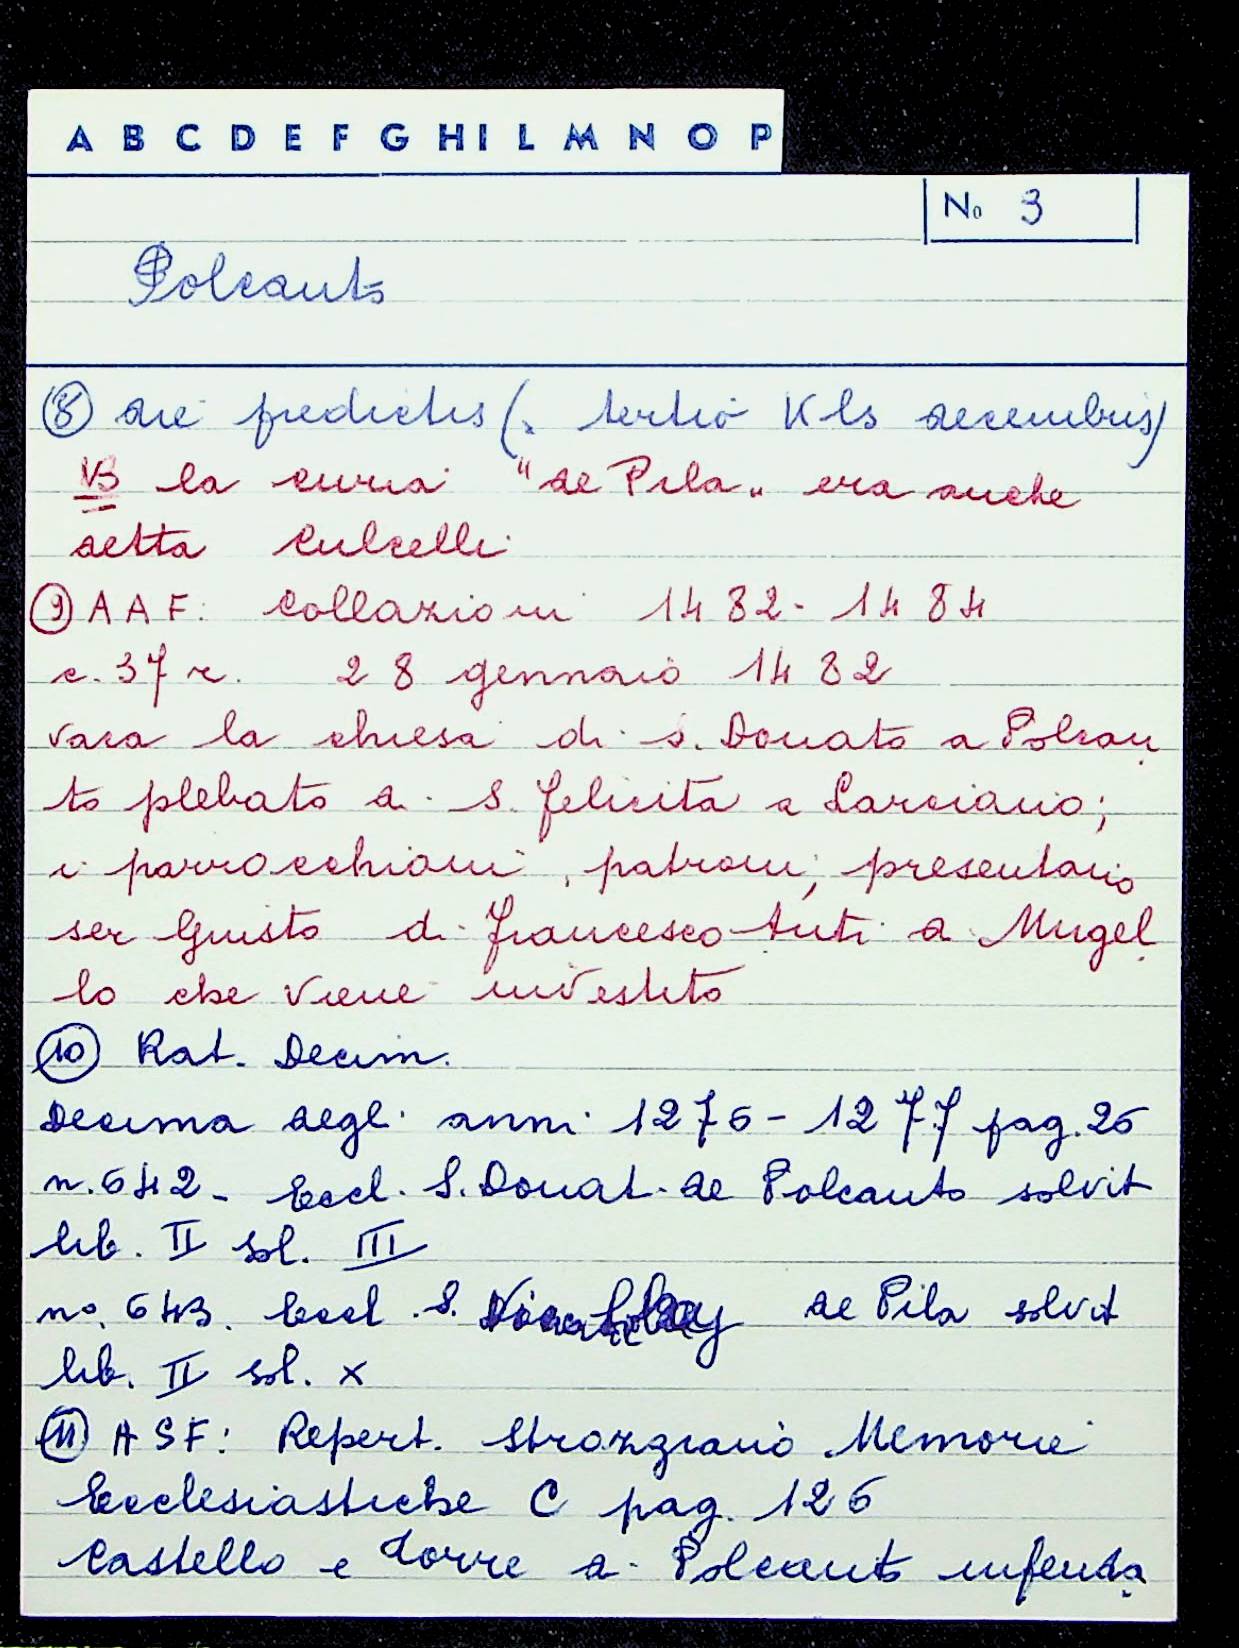 A B C D E F G H I L M N O P
No 3
Polcanto
(8) die predictis (: tertio Kls decembris)
NB la curia "de Pila" era anche
detta Culcelli
(9) A A F: Collazioni 1482-1484
c. 37 r. 28 gennaio 1482
vaca la chiesa di S. Donato a Polcan
to plebato di S. Felicita a Larciano;
i parrocchiani, patroni, presentano
ser Giusto di Francesco Tuti di Mugel
lo che viene investito
(10) Rat. Decim.
Decima degli anni 1276-1277 pag. 26
n. 642 - Eccl. S. Donat. de Polcanto solvit
lib. II sol. III
no. 643. Eccl. S. de Pila solvit
lib. II sol. X
(11) A S F: Repert. Strozziano Memorie
Ecclesiastiche C pag. 126
Castello e Torre di Polcanto infeuda